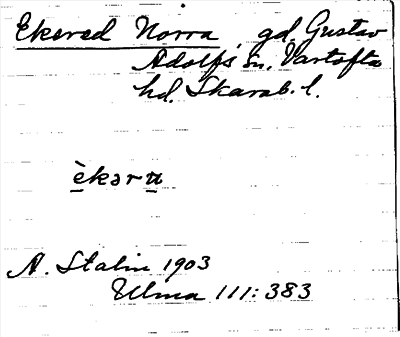 Ekered Norra, gd, Gustav
Adolfs sn, Vartofta
hd. Skarab. l.
èkəra
A. Stalin 1903
Ulma 111:383